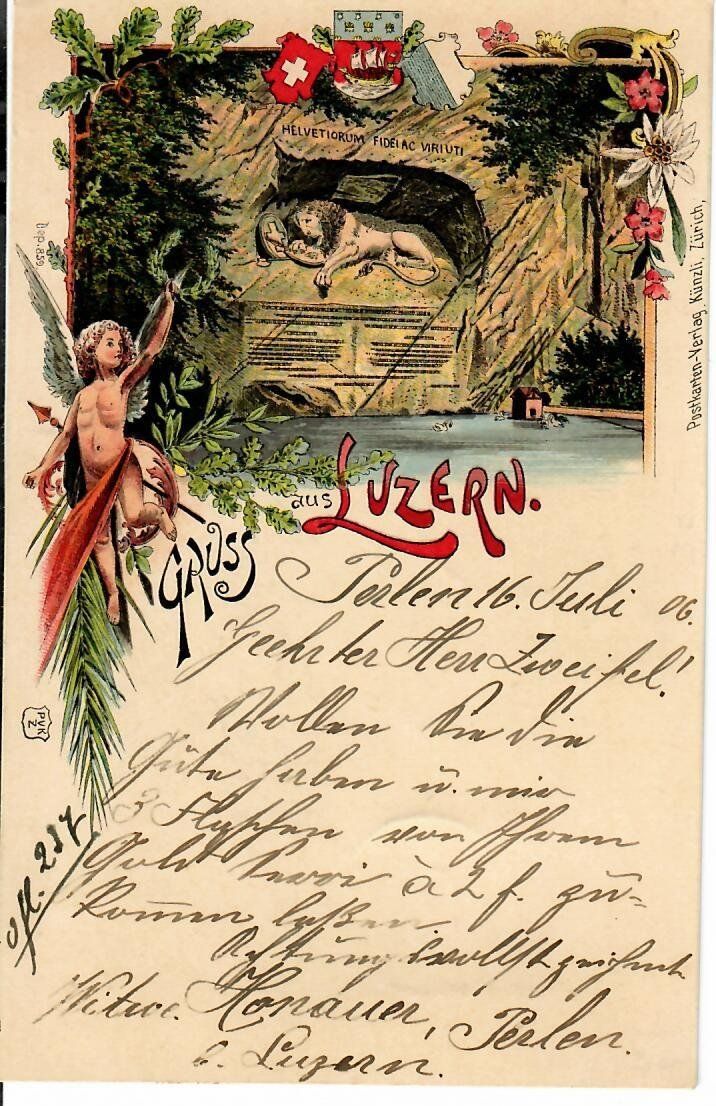 HELVETIORUM FIDEI AC VIRTUTI
Dep. 859
Postkarten-Verlag Künzli, Zürich,
GRUSS aus LUZERN.
PVK
Z
Perlen 16. Juli 06.
Geehrter Herr Zweifel!
Wollen Sie die
Güte haben u. mir
3 Flaschen von Ihrem
à 2 f. zu-
kom̄en laßen.
Achtungsvollst zeichnet
Witwe. Honauer, Perlen.
b. Luzern.